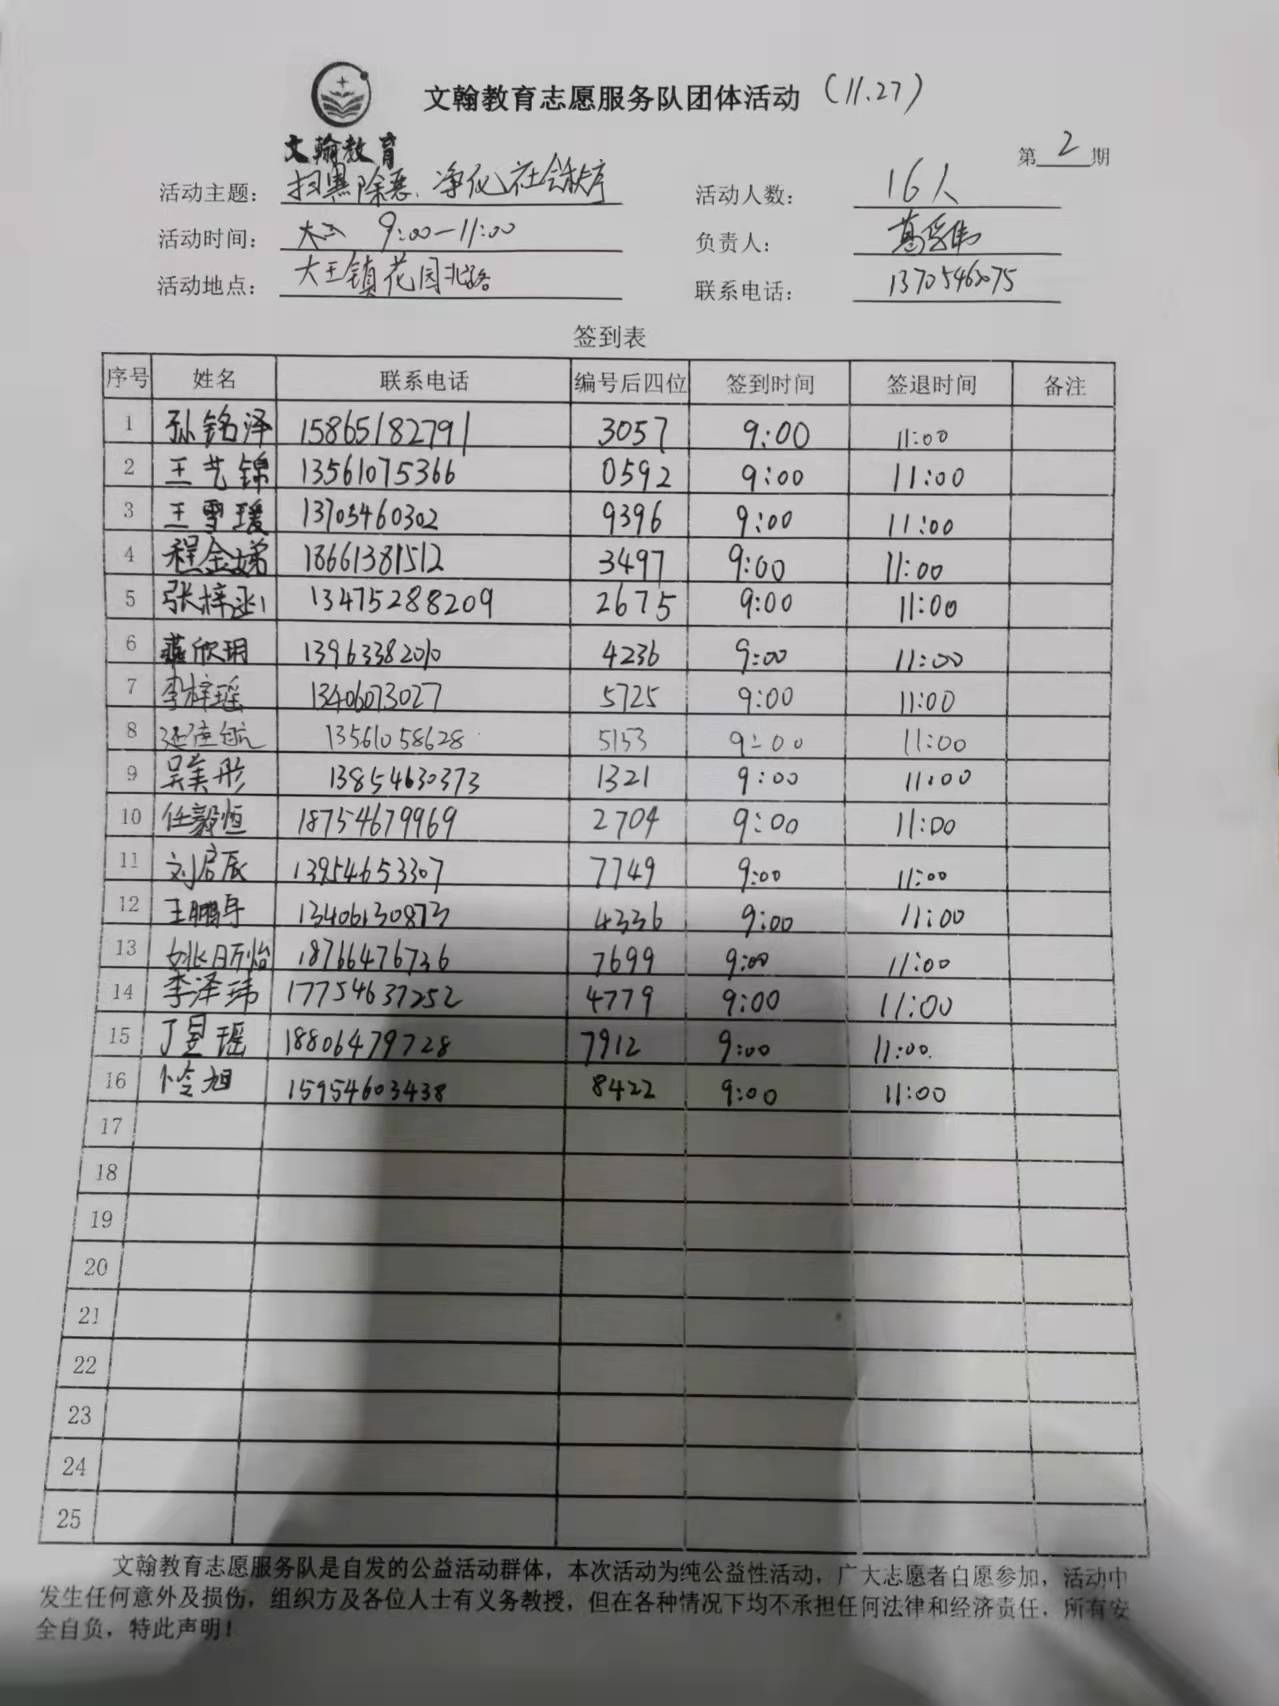 文翰教育志愿服务队团体活动 (11.27)
文翰教育
第 2 期
活动主题: 扫黑除恶、净化社会秩序 活动人数: 16人
活动时间: 9:00-11:00 负责人:
活动地点: 大王镇花园北路 联系电话: 13705462075
签到表
序号 姓名 联系电话 编号后四位 签到时间 签退时间 备注
1 孙铭泽 15865182791 3057 9:00 11:00
2 王艺锦 13561075366 0592 9:00 11:00
3 王雪瑗 13705460302 9396 9:00 11:00
4 程金娣 18661381512 3497 9:00 11:00
5 张梓涵 13475288209 2675 9:00 11:00
6 欣玥 13963382010 4236 9:00 11:00
7 李梓瑶 13406073027 5725 9:00 11:00
8 航 13561058628 5153 9:00 11:00
9 吴美彤 13854630373 1321 9:00 11:00
10 任毅恒 18754679969 2704 9:00 11:00
11 刘启辰 13954653307 7749 9:00 11:00
12 王鹏宇 13406130873 4336 9:00 11:00
13 姚玥怡 18766476736 7699 9:00 11:00
14 李泽玮 17754637252 4779 9:00 11:00
15 丁昱瑶 18806479728 7912 9:00 11:00
16 旭 15954603438 8422 9:00 11:00
17
18
19
20
21
22
23
24
25
文翰教育志愿服务队是自发的公益活动群体，本次活动为纯公益性活动，广大志愿者自愿参加，活动中
发生任何意外及损伤，组织方及各位人士有义务教授，但在各种情况下均不承担任何法律和经济责任，所有安
全自负，特此声明！